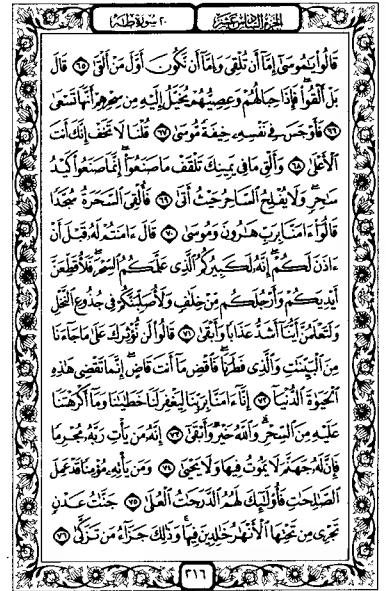 الجزء السادس عشر ٢٠ سورة طه
قَالُوا۟ يَٰمُوسَىٰٓ إِمَّآ أَن تُلْقِىَ وَإِمَّآ أَن نَّكُونَ أَوَّلَ مَنْ أَلْقَىٰ ٦٥ قَالَ
بَلْ أَلْقُوا۟ فَإِذَا حِبَالُهُمْ وَعِصِيُّهُمْ يُخَيَّلُ إِلَيْهِ مِن سِحْرِهِمْ أَنَّهَا تَسْعَىٰ
٦٦ فَأَوْجَسَ فِى نَفْسِهِۦ خِيفَةً مُّوسَىٰ ٦٧ قُلْنَا لَا تَخَفْ إِنَّكَ أَنتَ
ٱلْأَعْلَىٰ ٦٨ وَأَلْقِ مَا فِى يَمِينِكَ تَلْقَفْ مَا صَنَعُوٓا۟ إِنَّمَا صَنَعُوا۟ كَيْدُ
سَٰحِرٍ وَلَا يُفْلِحُ ٱلسَّاحِرُ حَيْثُ أَتَىٰ ٦٩ فَأُلْقِىَ ٱلسَّحَرَةُ سُجَّدًا
قَالُوٓا۟ ءَامَنَّا بِرَبِّ هَٰرُونَ وَمُوسَىٰ ٧٠ قَالَ ءَامَنتُمْ لَهُۥ قَبْلَ أَنْ
ءَاذَنَ لَكُمْ إِنَّهُۥ لَكَبِيرُكُمُ ٱلَّذِى عَلَّمَكُمُ ٱلسِّحْرَ فَلَأُقَطِّعَنَّ
أَيْدِيَكُمْ وَأَرْجُلَكُم مِّنْ خِلَٰفٍ وَلَأُصَلِّبَنَّكُمْ فِى جُذُوعِ ٱلنَّخْلِ
وَلَتَعْلَمُنَّ أَيُّنَآ أَشَدُّ عَذَابًا وَأَبْقَىٰ ٧١ قَالُوا۟ لَن نُّؤْثِرَكَ عَلَىٰ مَا جَآءَنَا
مِنَ ٱلْبَيِّنَٰتِ وَٱلَّذِى فَطَرَنَا فَٱقْضِ مَآ أَنتَ قَاضٍ إِنَّمَا تَقْضِى هَٰذِهِ
ٱلْحَيَوٰةَ ٱلدُّنْيَآ ٧٢ إِنَّآ ءَامَنَّا بِرَبِّنَا لِيَغْفِرَ لَنَا خَطَٰيَٰنَا وَمَآ أَكْرَهْتَنَا
عَلَيْهِ مِنَ ٱلسِّحْرِ وَٱللَّهُ خَيْرٌ وَأَبْقَىٰٓ ٧٣ إِنَّهُۥ مَن يَأْتِ رَبَّهُۥ مُجْرِمًا
فَإِنَّ لَهُۥ جَهَنَّمَ لَا يَمُوتُ فِيهَا وَلَا يَحْيَىٰ ٧٤ وَمَن يَأْتِهِۦ مُؤْمِنًا قَدْ عَمِلَ
ٱلصَّٰلِحَٰتِ فَأُو۟لَٰٓئِكَ لَهُمُ ٱلدَّرَجَٰتُ ٱلْعُلَىٰ ٧٥ جَنَّٰتُ عَدْنٍ
تَجْرِى مِن تَحْتِهَا ٱلْأَنْهَٰرُ خَٰلِدِينَ فِيهَا وَذَٰلِكَ جَزَآءُ مَن تَزَكَّىٰ ٧٦
٣١٦